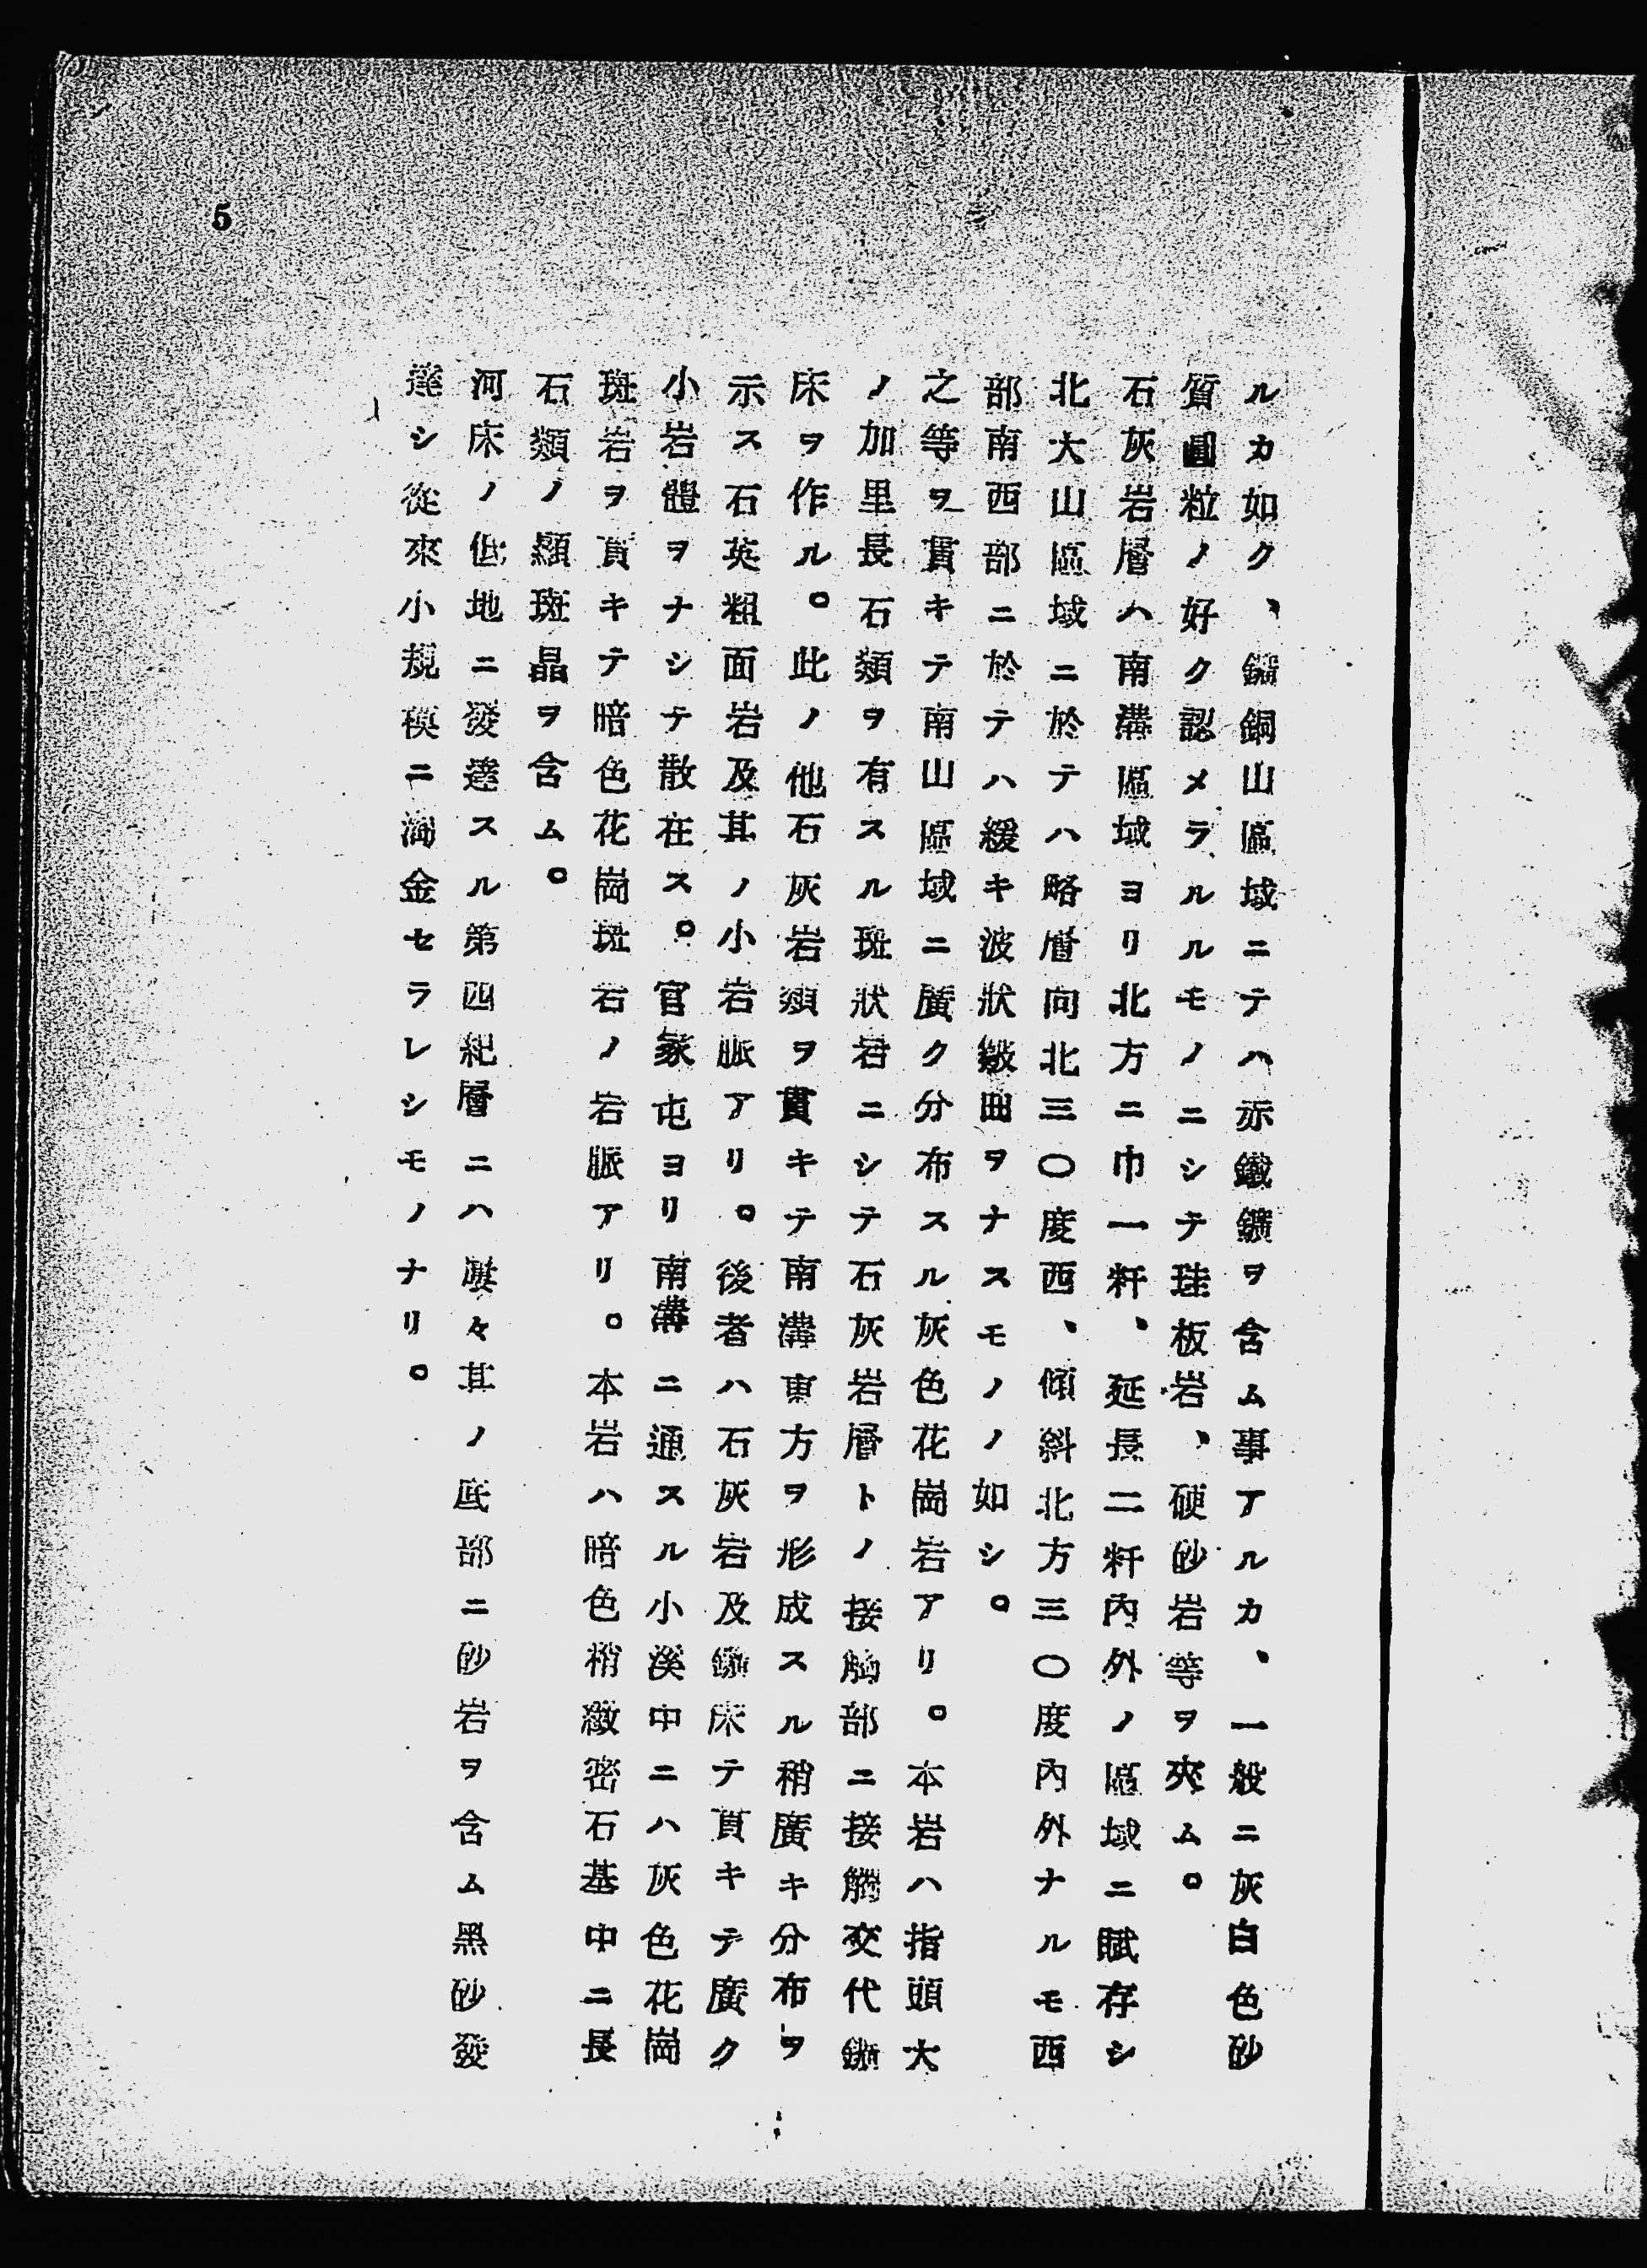 5
ルカ如ク、鑛銅山區域ニテハ亦鐵鑛ヲ含ム事アルカ、一般ニ灰白色砂
質圓粒ノ好ク認メラルルモノニシテ珪板岩、硬砂岩等ヲ夾ム。
石灰岩層ハ南溝區域ヨリ北方ニ巾一粁、延長二粁內外ノ區域ニ賦存シ
北大山區域ニ於テハ略層向北三〇度西、傾斜北方三〇度內外ナルモ西
部南西部ニ於テハ緩キ波狀皺曲ヲナスモノノ如シ。
之等ヲ貫キテ南山區域ニ廣ク分布スル灰色花崗岩アリ。本岩ハ指頭大
ノ加里長石類ヲ有スル斑狀岩ニシテ石灰岩層トノ接觸部ニ接觸交代鑛
床ヲ作ル。此ノ他石灰岩類ヲ貫キテ南溝東方ヲ形成スル稍廣キ分布ヲ
示ス石英粗面岩及其ノ小岩脈アリ。後者ハ石灰岩及鑛床テ貫キテ廣ク
小岩體ヲナシテ散在ス。官家屯ヨリ南溝ニ通スル小溪中ニハ灰色花崗
斑岩ヲ貫キテ暗色花崗斑岩ノ岩脈アリ。本岩ハ暗色稍緻密石基中ニ長
石類ノ顯斑晶ヲ含ム。
河床ノ低地ニ發達スル第四紀層ニハ屢々其ノ底部ニ砂岩ヲ含ム黑砂發
達シ從來小規模ニ淘金セラレシモノナリ。